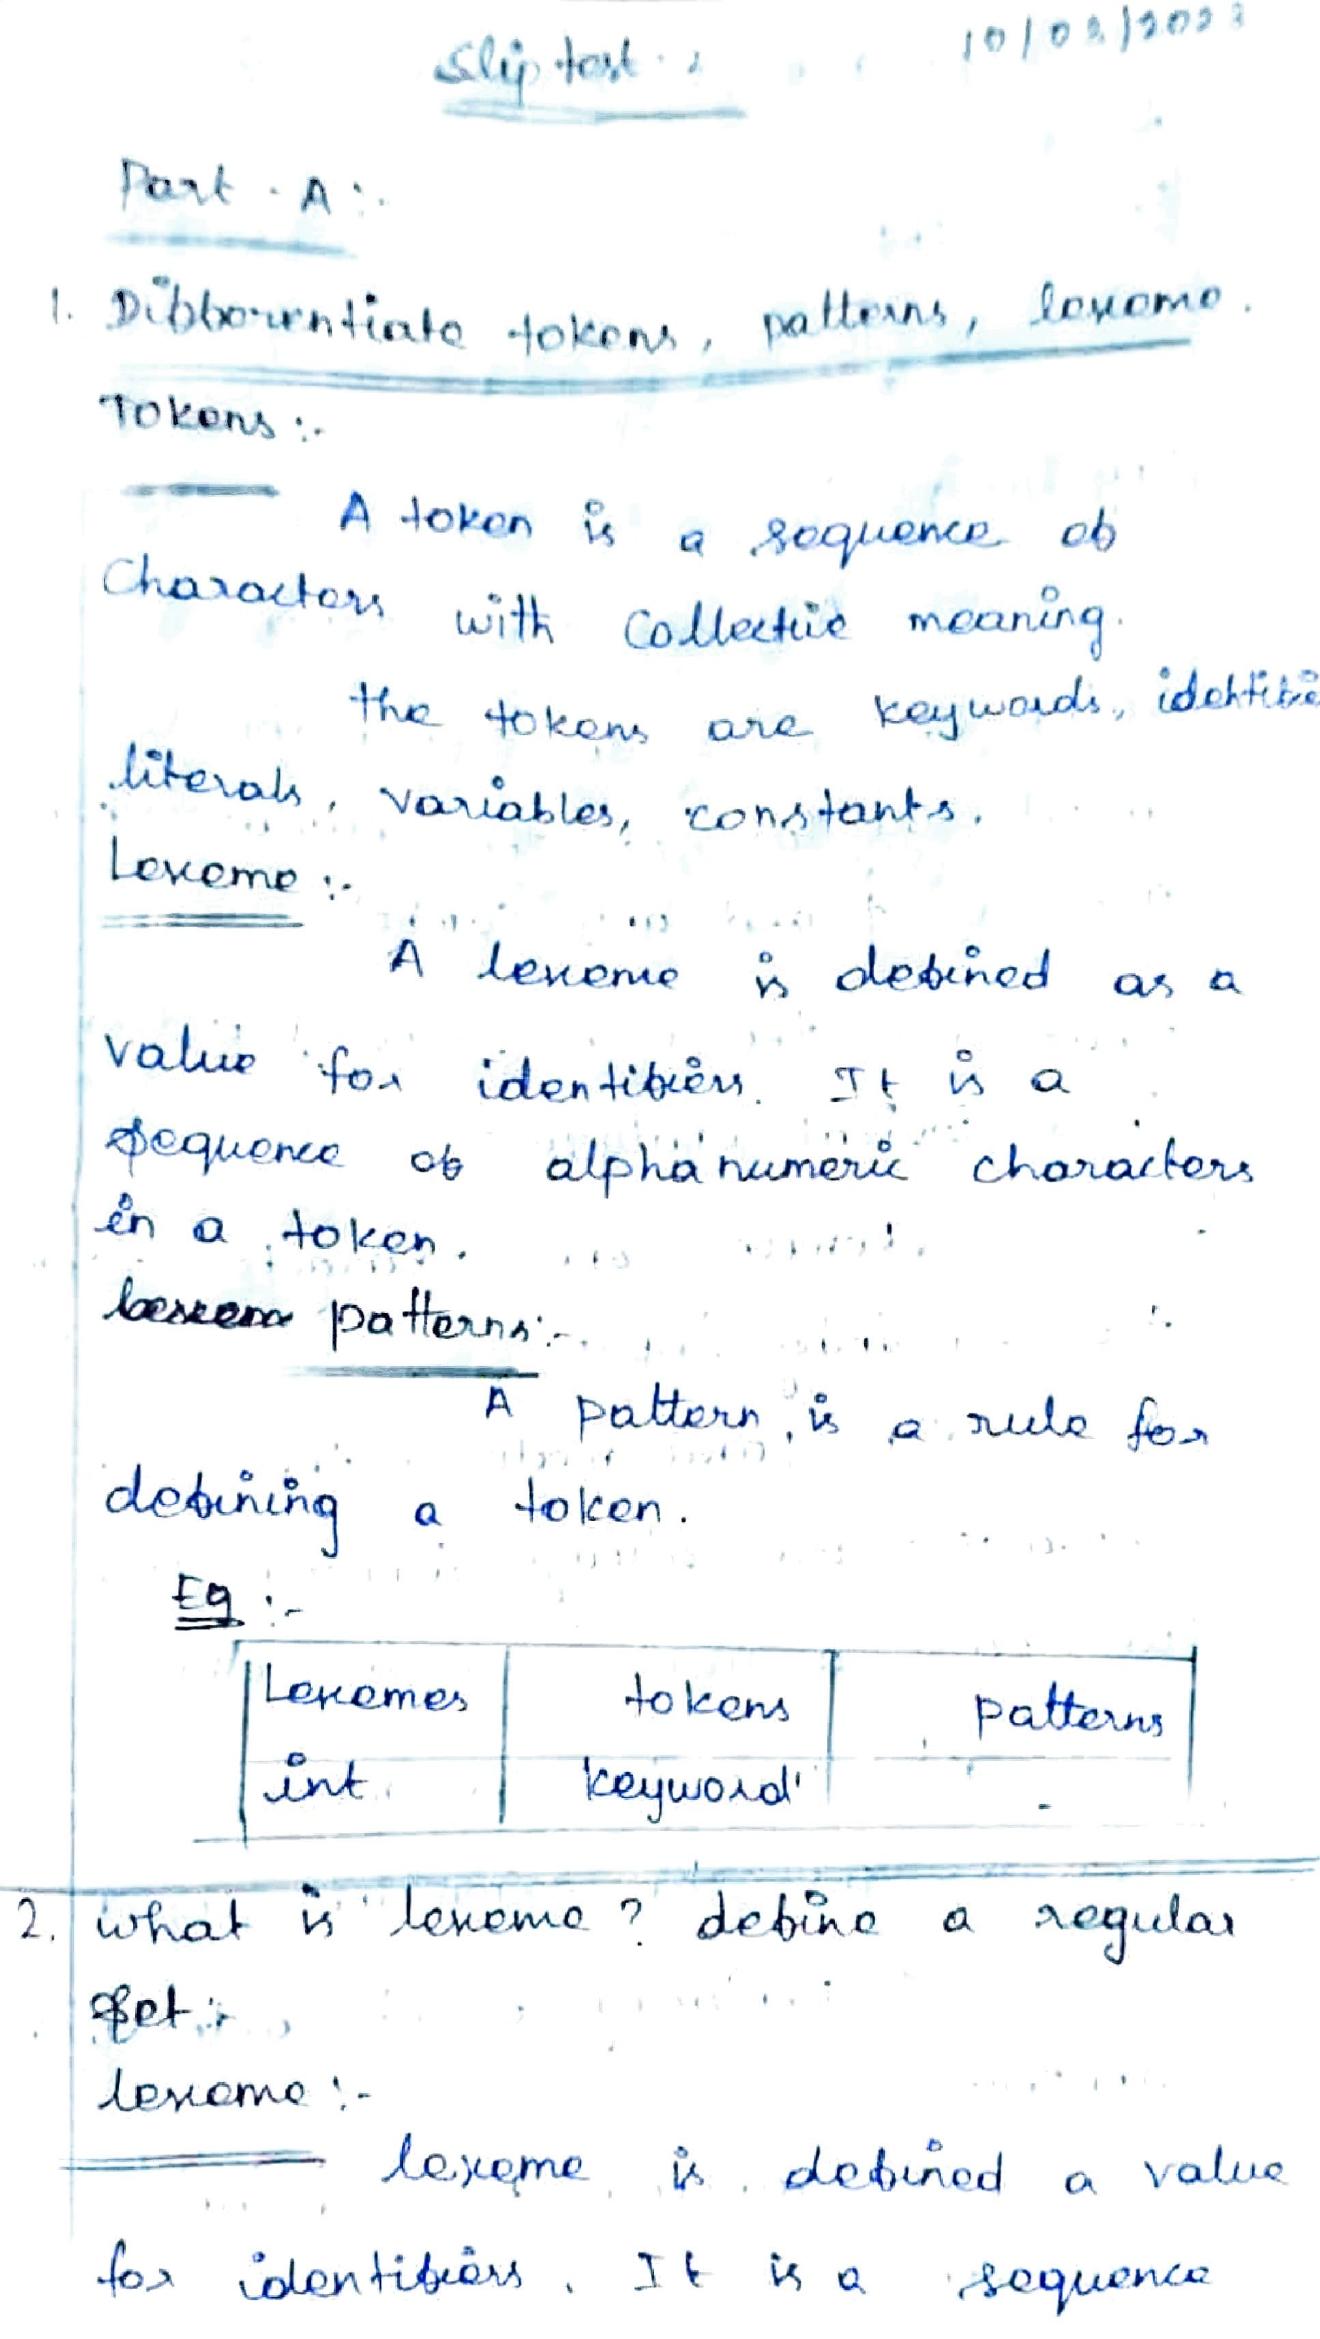 Slip test :
10/02/2023
Part - A :-
1. Differentiate tokens, patterns, lexeme.
Tokens :-
A token is a sequence of
Characters with Collective meaning.
the tokens are keywords, identifie
literals, variables, constants.
Lexeme :-
A lexeme is defined as a
value for identifiers. It is a
sequence of alphanumeric characters
in a token.
patterns :-
A pattern is a rule for
defining a token.
Eg :-
Lexemes tokens patterns
int keyword -
2. what is lexeme? define a regular
Set :-
lexeme :-
lexeme is defined a value
for identifiers. It is a sequence